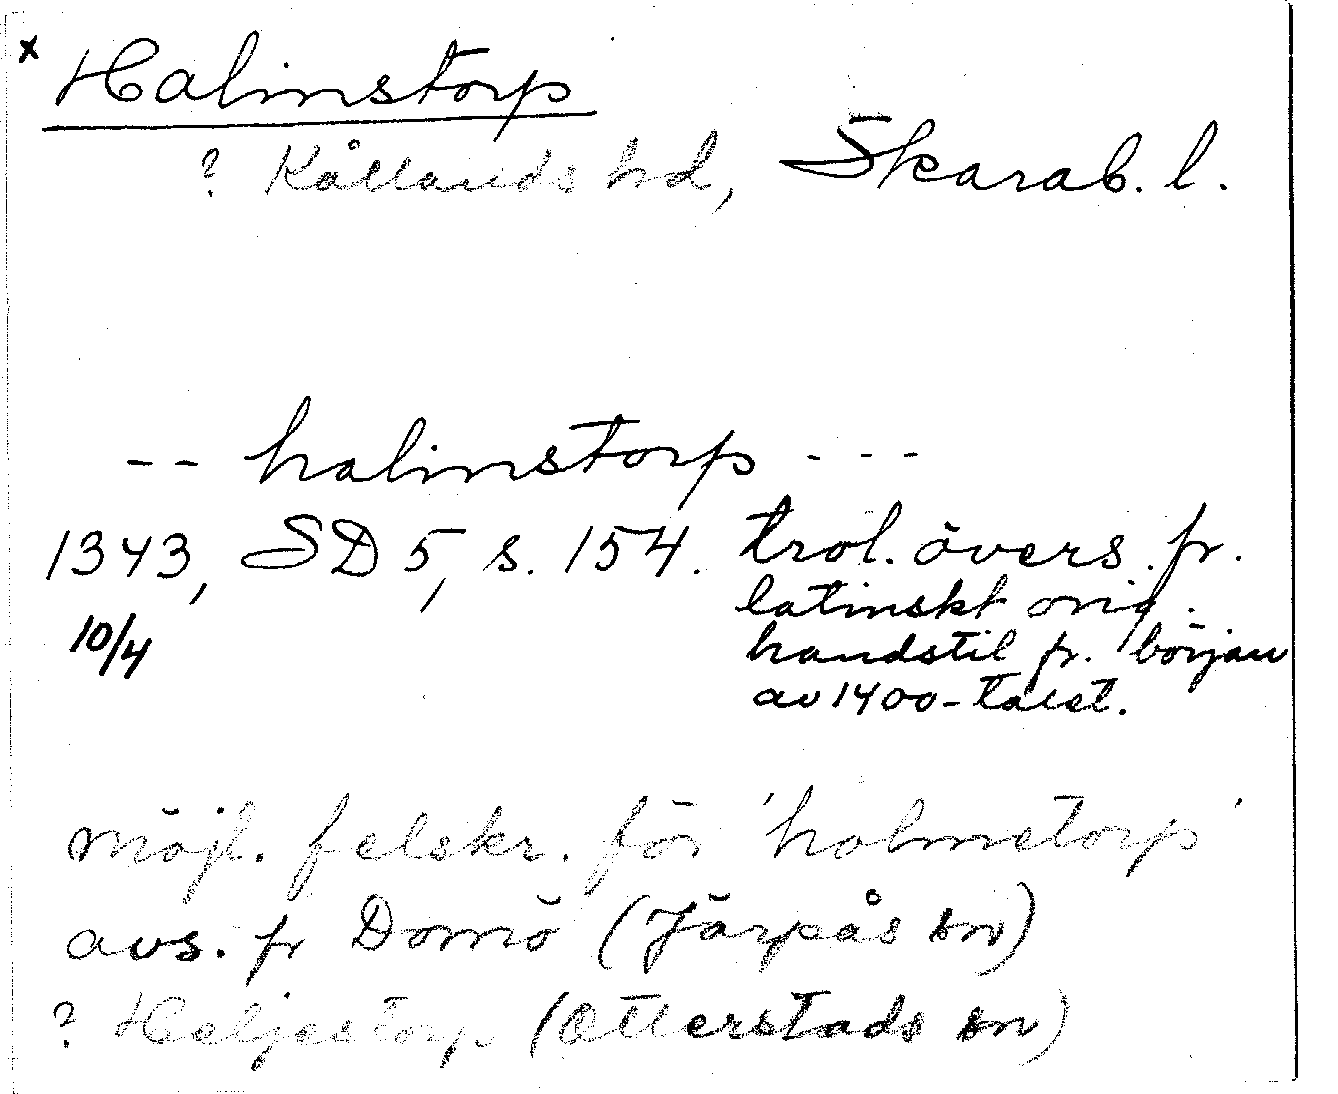 x Halinstorp
? Kållands hd, Skarab. l.
-- halinstorp ---
1343, SD 5, s. 154. trol. övers. fr.
10/4 latinskt orig.
handstil fr. början
av 1400-talet.
möjl. felskr. för 'holmstorp'
avs. fr Domö (Järpås sn)
? Heljestorp (Otterstads sn)